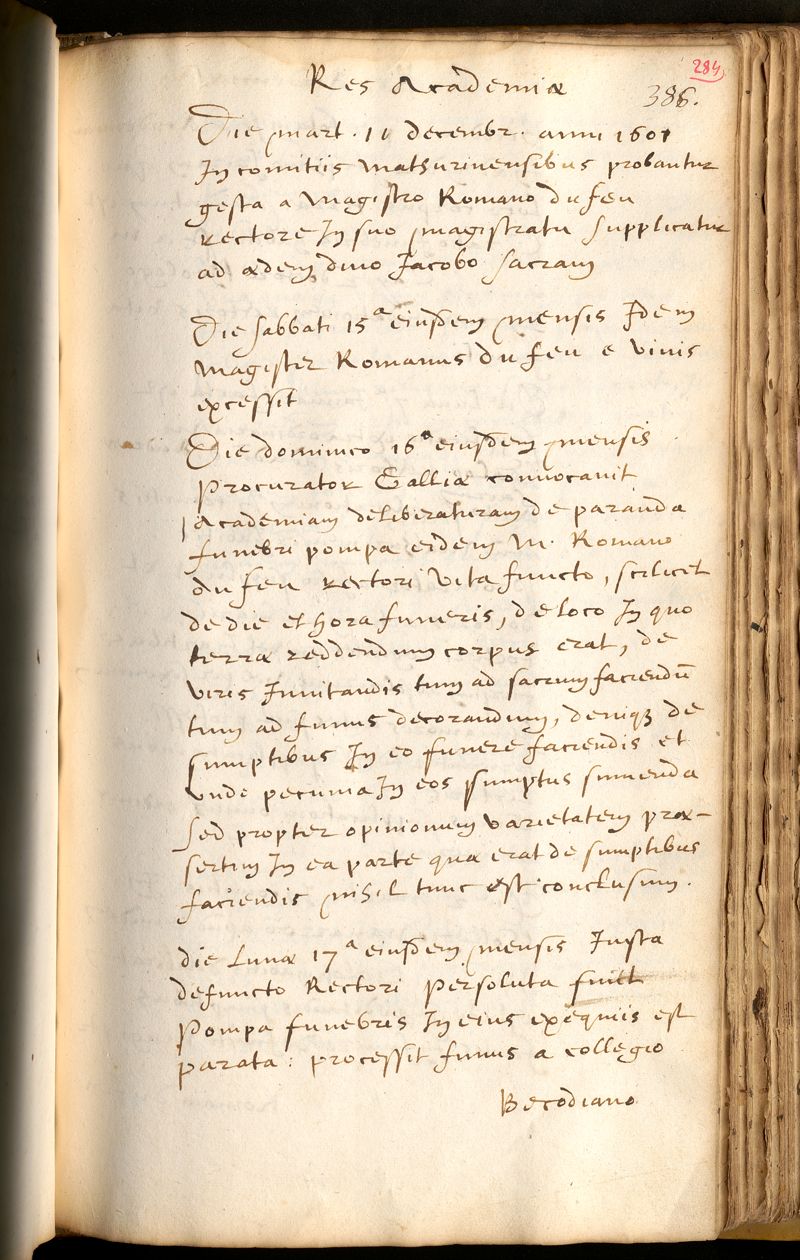 284
Res Academiæ
386.
Die mart. 11 decembr. anni 1601
In comitiis Mathurinensibus probantur
gesta a Magistro Romano du feu
rectore In suo magistratu Supplicatur
ad ædem divo Jacobo Sacram
Die Sabbati 15ª eiusdem mensis Idem
Magister Romanus du feu e vivis
excessit
Die dominico 16ª eiusdem mensis
Procurator Galliæ convocavit
Academiam deliberaturam de paranda
funebri pompa eidem M. Romano
du feu rectori vita functo, scilicet
de die et hora funeris, de loco In quo
terræ reddendum corpus erat, de
viris Invitandis tum ad sacrum faciendū
tum ad funus decorandum, deniqꝫ de
sumptibus In eo funere faciendis et
unde pecunia In eos sumptus sumenda
Sed propter opinionum varietatem præ-
sertim In ea parte quæ erat de sumptibus
faciendis nihil tunc est conclusum.
die Lunæ 17ª eiusdem mensis Iusta
defuncto Rectori persoluta
Pompa funebris In eius exequiis est
parata: processit funus a collegio
Becodiano